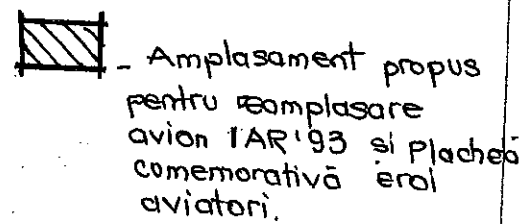 - Amplasament propus
pentru reamplasare
avion IAR'93 si Plachetă
comemorativă eroi
aviatori.